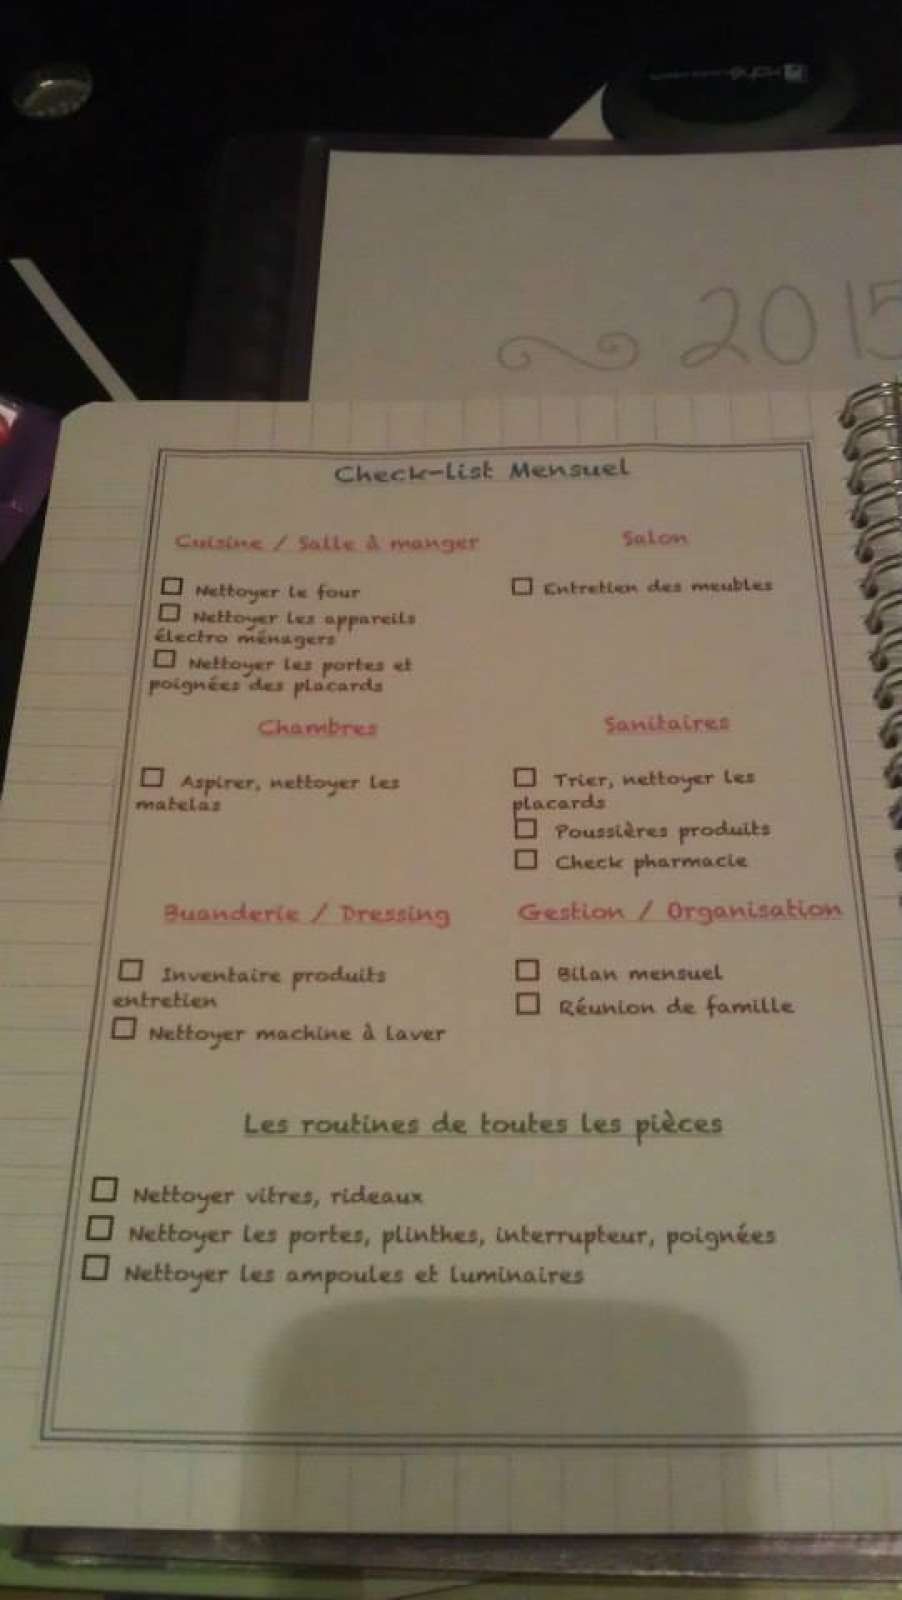 2015
Check-list Mensuel
Cuisine / Salle à manger
Nettoyer le four
Nettoyer les appareils
électro ménagers
Nettoyer les portes et
poignées des placards
Salon
Entretien des meubles
Chambres
Aspirer, nettoyer les
matelas
Sanitaires
Trier, nettoyer les
placards
Poussières produits
Check pharmacie
Buanderie / Dressing
Inventaire produits
entretien
Nettoyer machine à laver
Gestion / Organisation
Bilan mensuel
Réunion de famille
Les routines de toutes les pièces
Nettoyer vitres, rideaux
Nettoyer les portes, plinthes, interrupteur, poignées
Nettoyer les ampoules et luminaires